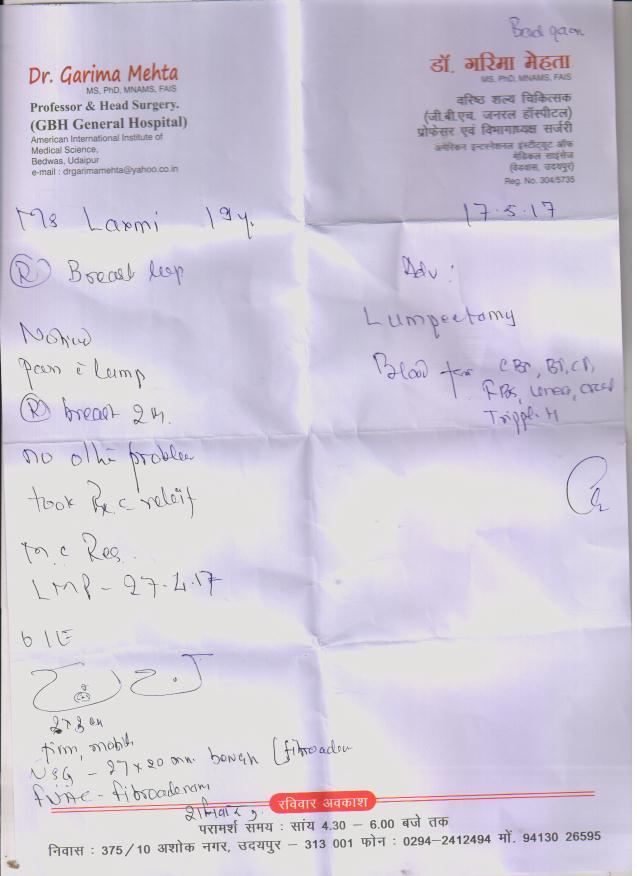 Badgaon
Dr. Garima Mehta
MS, PhD, MNAMS, FAIS
Professor & Head Surgery.
(GBH General Hospital)
American International Institute of
Medical Science,
Bedwas, Udaipur
e-mail : drgarimamehta@yahoo.co.in
डॉ. गरिमा मेहता
MS, PhD, MNAMS, FAIS
वरिष्ठ शल्य चिकित्सक
(जी.बी.एच. जनरल हॉस्पीटल)
प्रोफेसर एवं विभागाध्यक्ष सर्जरी
अमेरिकन इन्टरनेशनल इंस्टीट्यूट ऑफ
मेडिकल साइसेज
(बेडवास, उदयपुर)
Reg. No. 304/5735
Ms Laxmi 19y.
17.5.17
(R) Breast lump
Noticed
pain c̄ lump
(R) breast
no other problem
took Rx c relief
m.c Reg.
LMP - 27.4.17
O/E
firm, mobile
USG - 27 x 20 mm. benign (fibroaden
FNAC - fibroadenoma
Adv :
Lumpectomy
Blood for CBC, BT, CT,
RBS, urea, creat
Tripple H
शनिवार
रविवार अवकाश
परामर्श समय : सांय 4.30 – 6.00 बजे तक
निवास : 375/10 अशोक नगर, उदयपुर – 313 001 फोन : 0294-2412494 मों. 94130 26595